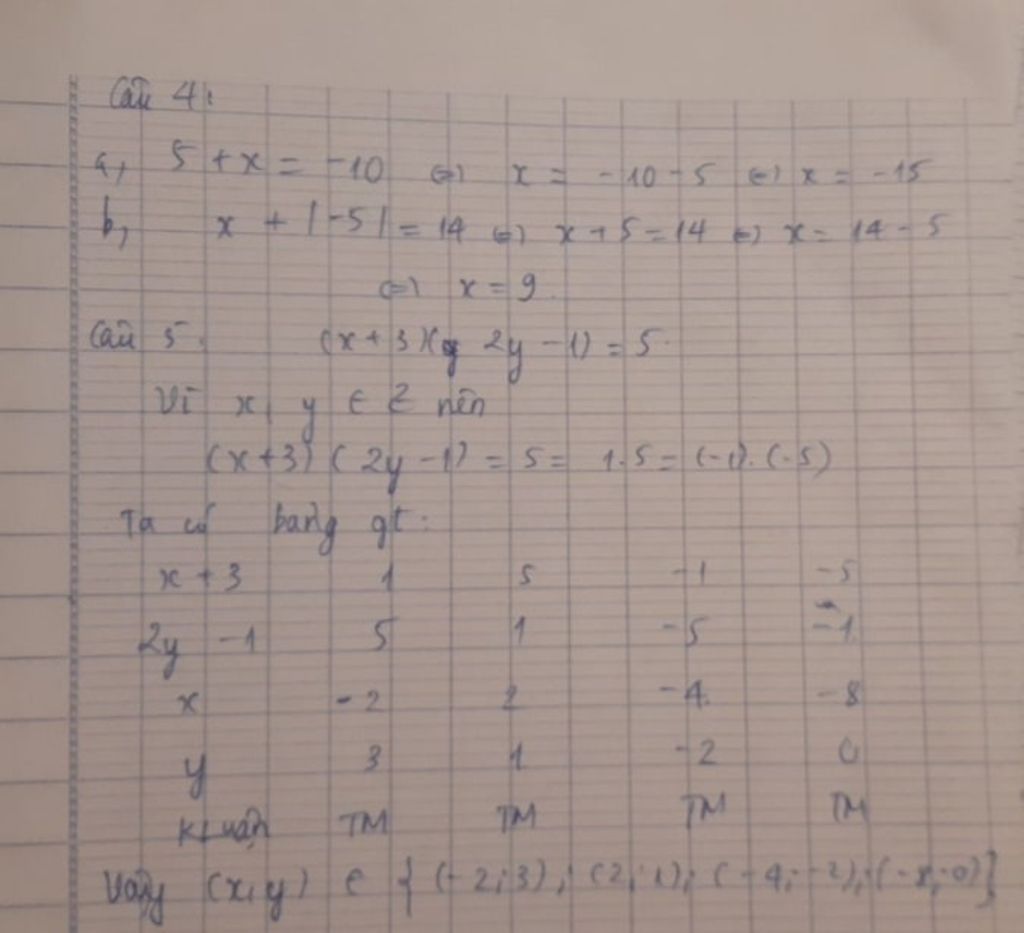 Câu 4:
a, 5 + x = -10 <=> x = -10 - 5 <=> x = -15
b, x + |-5| = 14 <=> x + 5 = 14 <=> x = 14 - 5
<=> x = 9.
Câu 5. (x + 3)( 2y - 1) = 5.
Vì x, y ∈ Z nên
(x+3) ( 2y - 1) = 5 = 1.5 = (-1). (-5)
Ta có bảng gt:
x + 3 1 5 -1 -5
2y - 1 5 1 -5 -1
x -2 2 -4 -8
y 3 1 -2 0
K luận TM TM TM TM
Vậy (x, y) ∈ { (-2; 3); (2; 1); (-4; -2); (-8; 0)}